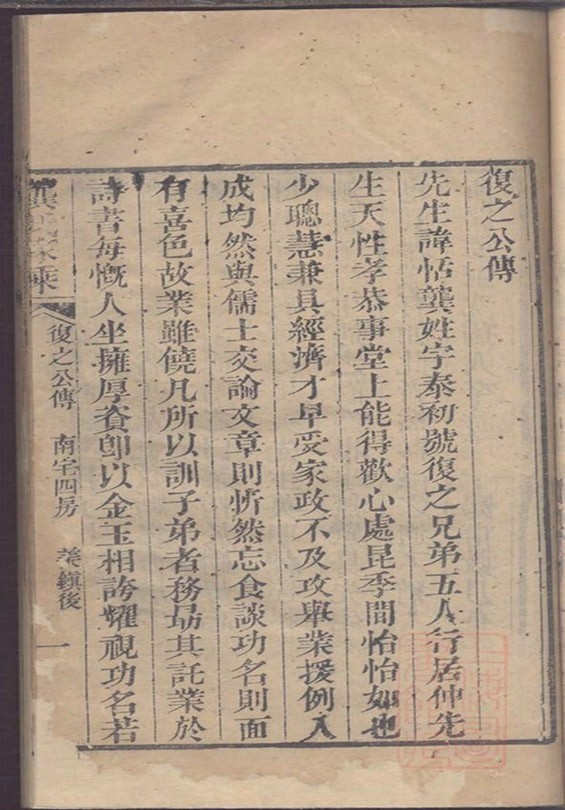 復之公傳
先生諱恬龔姓字泰初號復之兄弟五人行居仲先
生天性孝恭事堂上能得歡心處昆季間怡怡如也
少聰慧兼具經濟才早受家政不及攻舉業援例入
成均然與儒士交論文章則忻然忘食談功名則面
有喜色故業雖饒凡所以訓子弟者務勗其託業於
詩書每慨人坐擁厚資卽以金玉相誇耀視功名若
龔氏家乘
復之公傳 南宅四房 鎮後 一